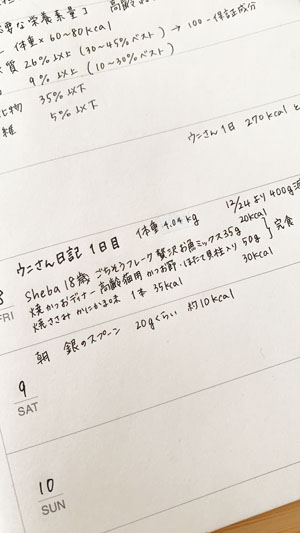 要な栄養素量】 高齢
体重 × 60~80kcal
質 26%以上 (30~45%ベスト) → 100-保証成分
9%以上 (10~30%ベスト)
化物 35%以下
維 5%以下
ウニさん1日 270kcal と
ウニさん日記 1日目 体重 4.04kg 12/24より400g減
FRI
Sheba 18歳 ごちそうフレーク 贅沢お魚ミックス35g 20kcal
焼かつおディナー 高齢猫用 かつお節・ほたて貝柱入り 50g 30kcal } 完食
焼ささみ かにかま味 1本 35kcal
朝 銀のスプーン 20gくらい 約10kcal
9
SAT
10
SUN